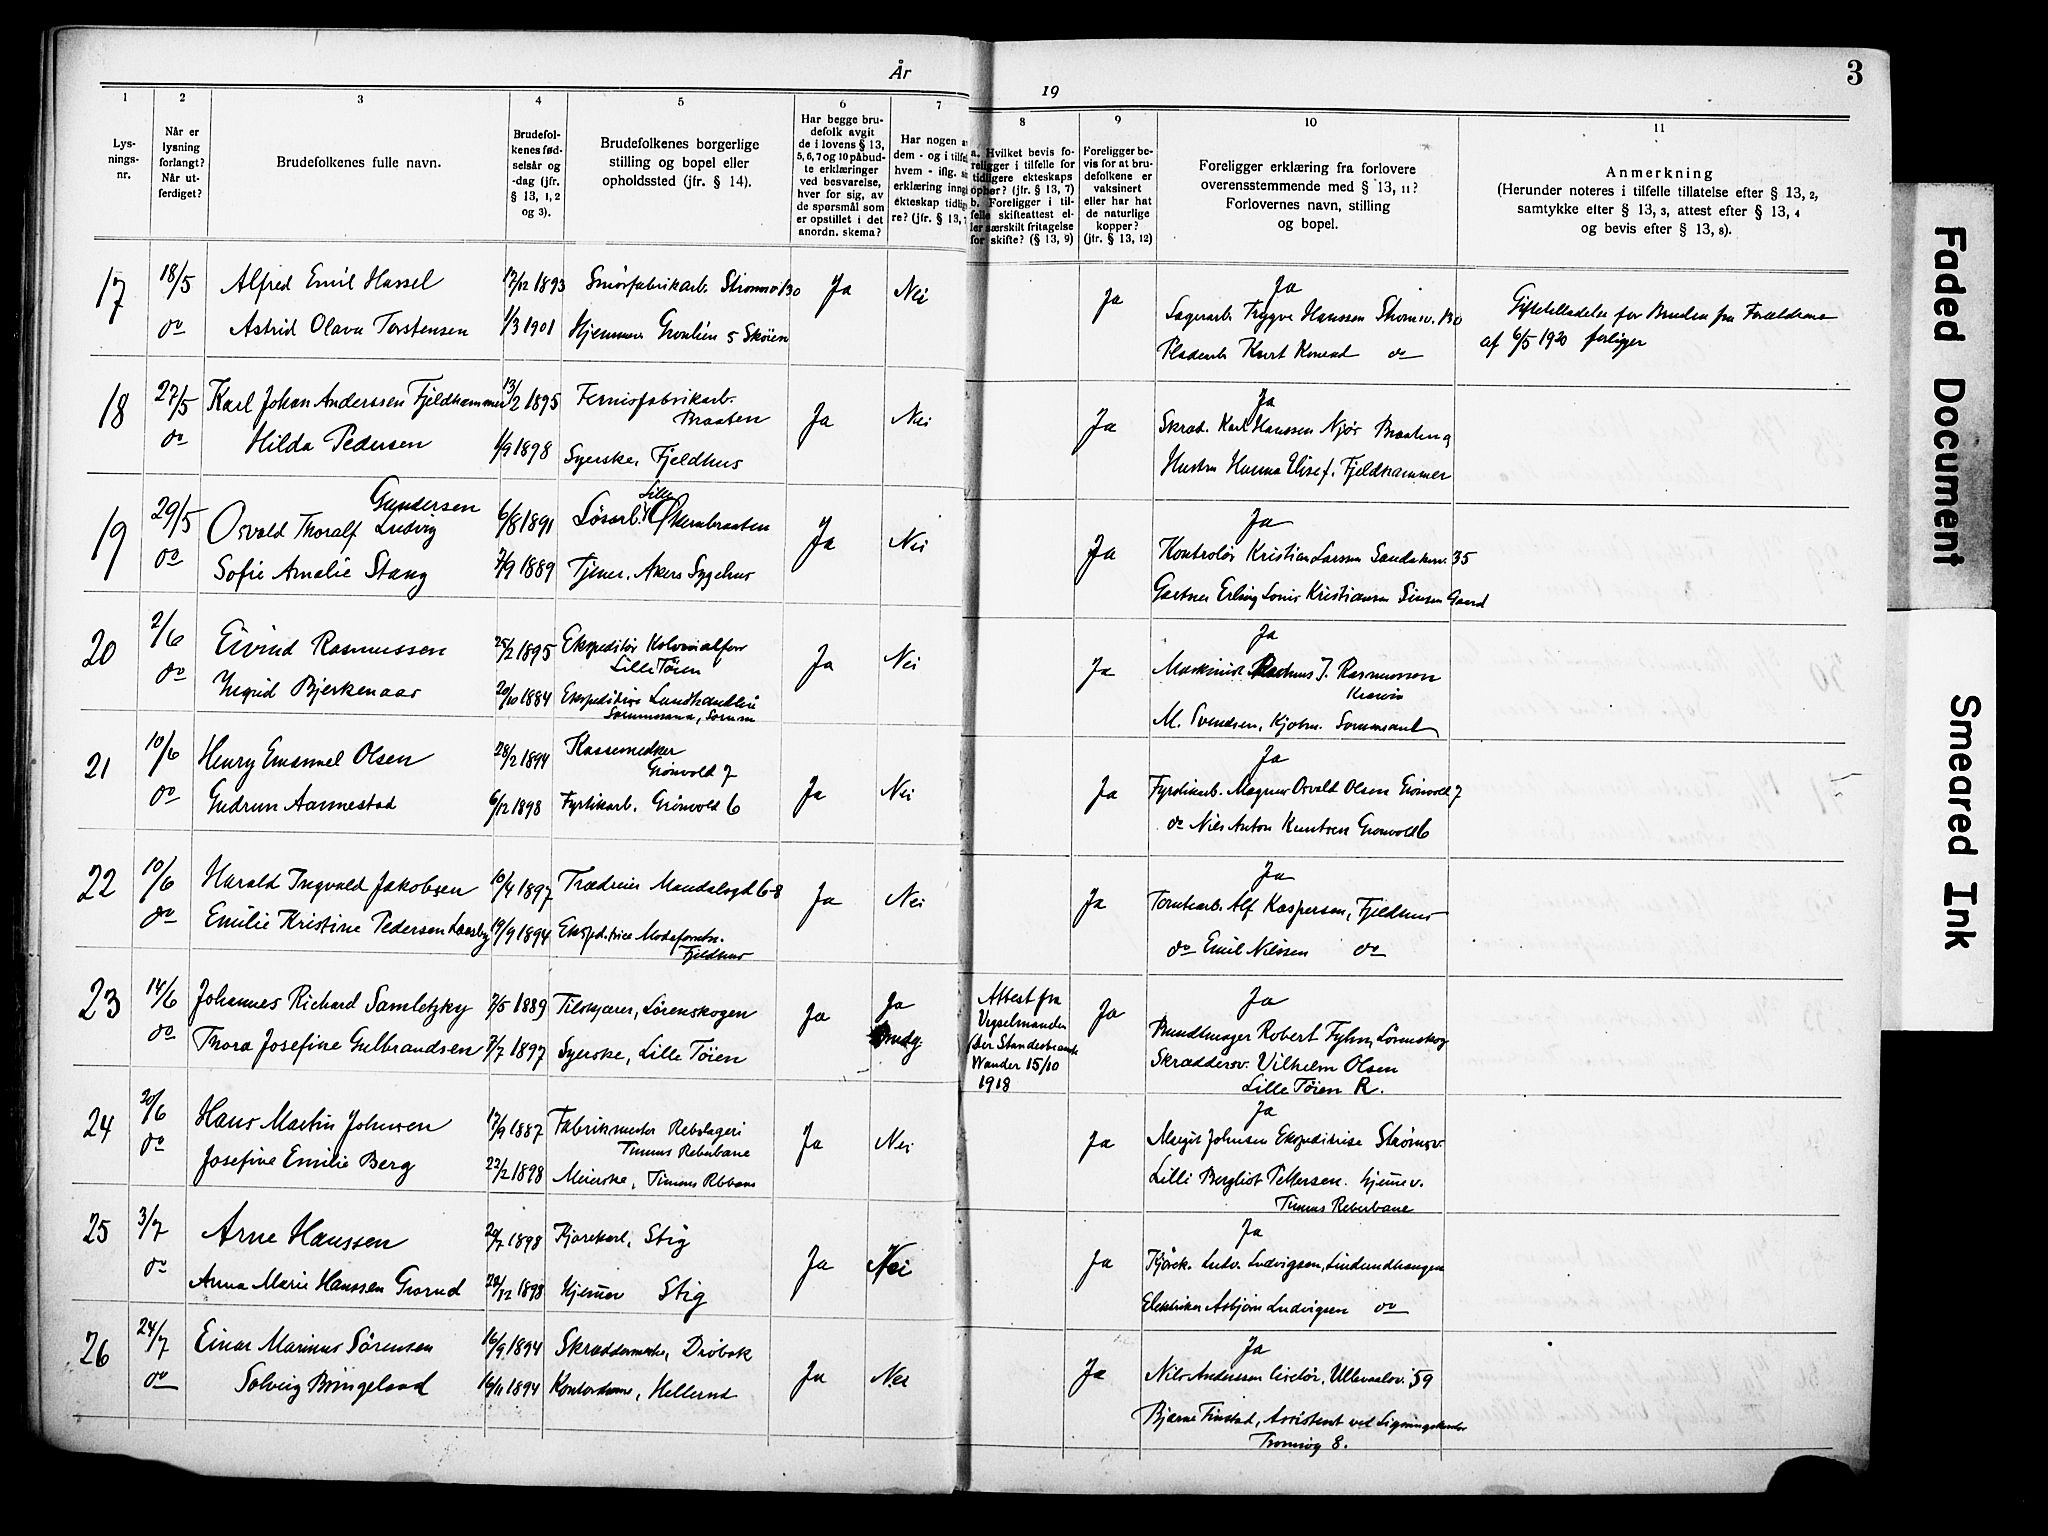 År
19
3
1
2
3
4
5
6
7
8
9
10
11
Lys-
nings-
nr.
Når er
lysning
forlangt?
Når ut-
ferdiget?
Brudefolkenes fulle navn.
Brudefol-
kenes fød-
selsår og
-dag (jfr.
§ 13, 1, 2
og 3).
Brudefolkenes borgerlige
stilling og bopel eller
opholdssted (jfr. § 14).
Har begge bru-
defolk avgit
de i lovens § 13,
5, 6, 7 og 10 påbud-
te erklæringer
ved besvarelse,
hver for sig, av
de spørsmål som
er opstillet i det
anordn. skema?
Har nogen a
dem - og i tilfel
hvem - iflg.
erklæring inng
ekteskap tidlig
re? (jfr. § 13,
a. Hvilket bevis fo-
religger i tilfelle for
tidligere ekteskaps
ophør? (jfr. § 13, 7)
b. Foreligger i til-
felle skifteattest el-
ler særskilt fritagelse
for skifte? (§ 13, 9)
Foreligger be-
vis for at bru-
defolkene er
vaksinert
eller har hat
de naturlige
kopper?
(jfr. § 13, 12)
Foreligger erklæring fra forlovere
overensstemmende med § 13, 11?
Forlovernes navn, stilling
og bopel.
Anmerkning
(Herunder noteres i tilfelle tillatelse efter § 13, 2,
samtykke efter § 13, 3, attest efter § 13, 4
og bevis efter § 13, 8).
17 18/5 Alfred Emil Hassel 17/12 1893 Smørfabrikarb. Strømsv. 130 Ja Nei Ja Ja
do Astrid Olava Torstensen 1/3 1901 Hjemmev. 5 Skøien
Trygve Hanssen Strømsv. 130
Knut Konrad do
Giftetilladelse for Bruden fra Forældrene
af 6/5 1920 forligger
18 27/5 Karl Johan Anderssen Fjeldhammer 13/2 1895 Fernisfabrikarb.
Braaten Ja Nei Ja Ja
do Hilda Pedersen 1/9 1898 Syerske, Fjeldhus
Skræd. Karl Hanssen Braaten
Hustru Hanna Fjeldhammer
19 29/5 Osvald Thoralf Ludvig Gundersen 6/8 1891 Løsarb. Lille Økernbraaten Ja Nei Ja Ja
do Sofie Amalie Stang 7/9 1889 Tjener. Akers Sygehus
Kontrolør Kristian Larssen Sandakerv. 35
Gartner Erling Louis Kristiansen Sinsen Gaard
20 2/6 Eivind Rasmussen 25/2 1895 Ekspeditør Kolonialforr
Lille Tøien Ja Nei Ja Ja
do Ingrid Bjerkenaas 20/10 1884 Ekspeditrice Landhandleri
Maskinist J. Rasmussen
M. Svendsen,
21 10/6 Henry Emanuel Olsen 28/2 1894 Kassemedker
Grønvold 7 Ja Nei Ja Ja
do Gudrun Aannestad 6/12 1898 Fyrstikarb. Grønvold 6
Fyrstikarb. Magnus Osvald Olsen Grønvold 7
do Nils Anton Knutsen Grønvold 6
22 10/6 Harald Ingvald Jakobsen 10/4 1897 Trædreier Mandalsgd 6-8 Ja Nei Ja Ja
do Emilie Kristine Pedersen Laasby 19/9 1894 Ekspeditrice
Fjeldhus
Tomtearb. Alf Kaspersen, Fjeldhus
do Emil Nilssen do
23 14/6 Johannes Richard Samletzky 7/5 1889 Tilskjærer, Lørenskogen Ja Ja
do Thora Josefine Gulbrandsen 7/7 1897 Syerske, Lille Tøien Brudg
Attest fra
Vigselmanden
Der Standesbeamte
Wander 15/10
1918
Ja Ja
Robert Fyhn, Lørenskog
Skræddersv. Vilhelm Olsen
Lille Tøien R.
24 20/6 Hans Martin Johnsen 17/9 1887 Fabrikmester Rebslageri
Timms Reberbane Ja Nei Ja Ja
do Josefine Emilie Berg 22/2 1898 Meierske, Timms Rbbane
Margit Johnsen Ekspeditrise Strømsv.
Lilli Bergliot Pettersen. hjemmev.
Timms Reberbane
25 3/7 Arne Hanssen 20/7 1898 Kjørekarl, Stig Ja Nei Ja Ja
do Anna Marie Hanssen Grorud 28/12 1898 Hjemmev Stig
Kjørek. Ludv. Ludvigsen,
Elektriker Asbjørn Ludvigsen do
26 24/7 Einar Marinus Sørensen 16/9 1894 Skræddermester, Drøbak Ja Nei Ja Ja
do Solveig Bringeland 16/11 1894 Kontordame, Hellerud
Nils Anderssen Ullevaalsv. 59
Bjarne Finstad, Assistent ved Ligningskontor
Tromsøg 8.
Faded Document
Smeared Ink